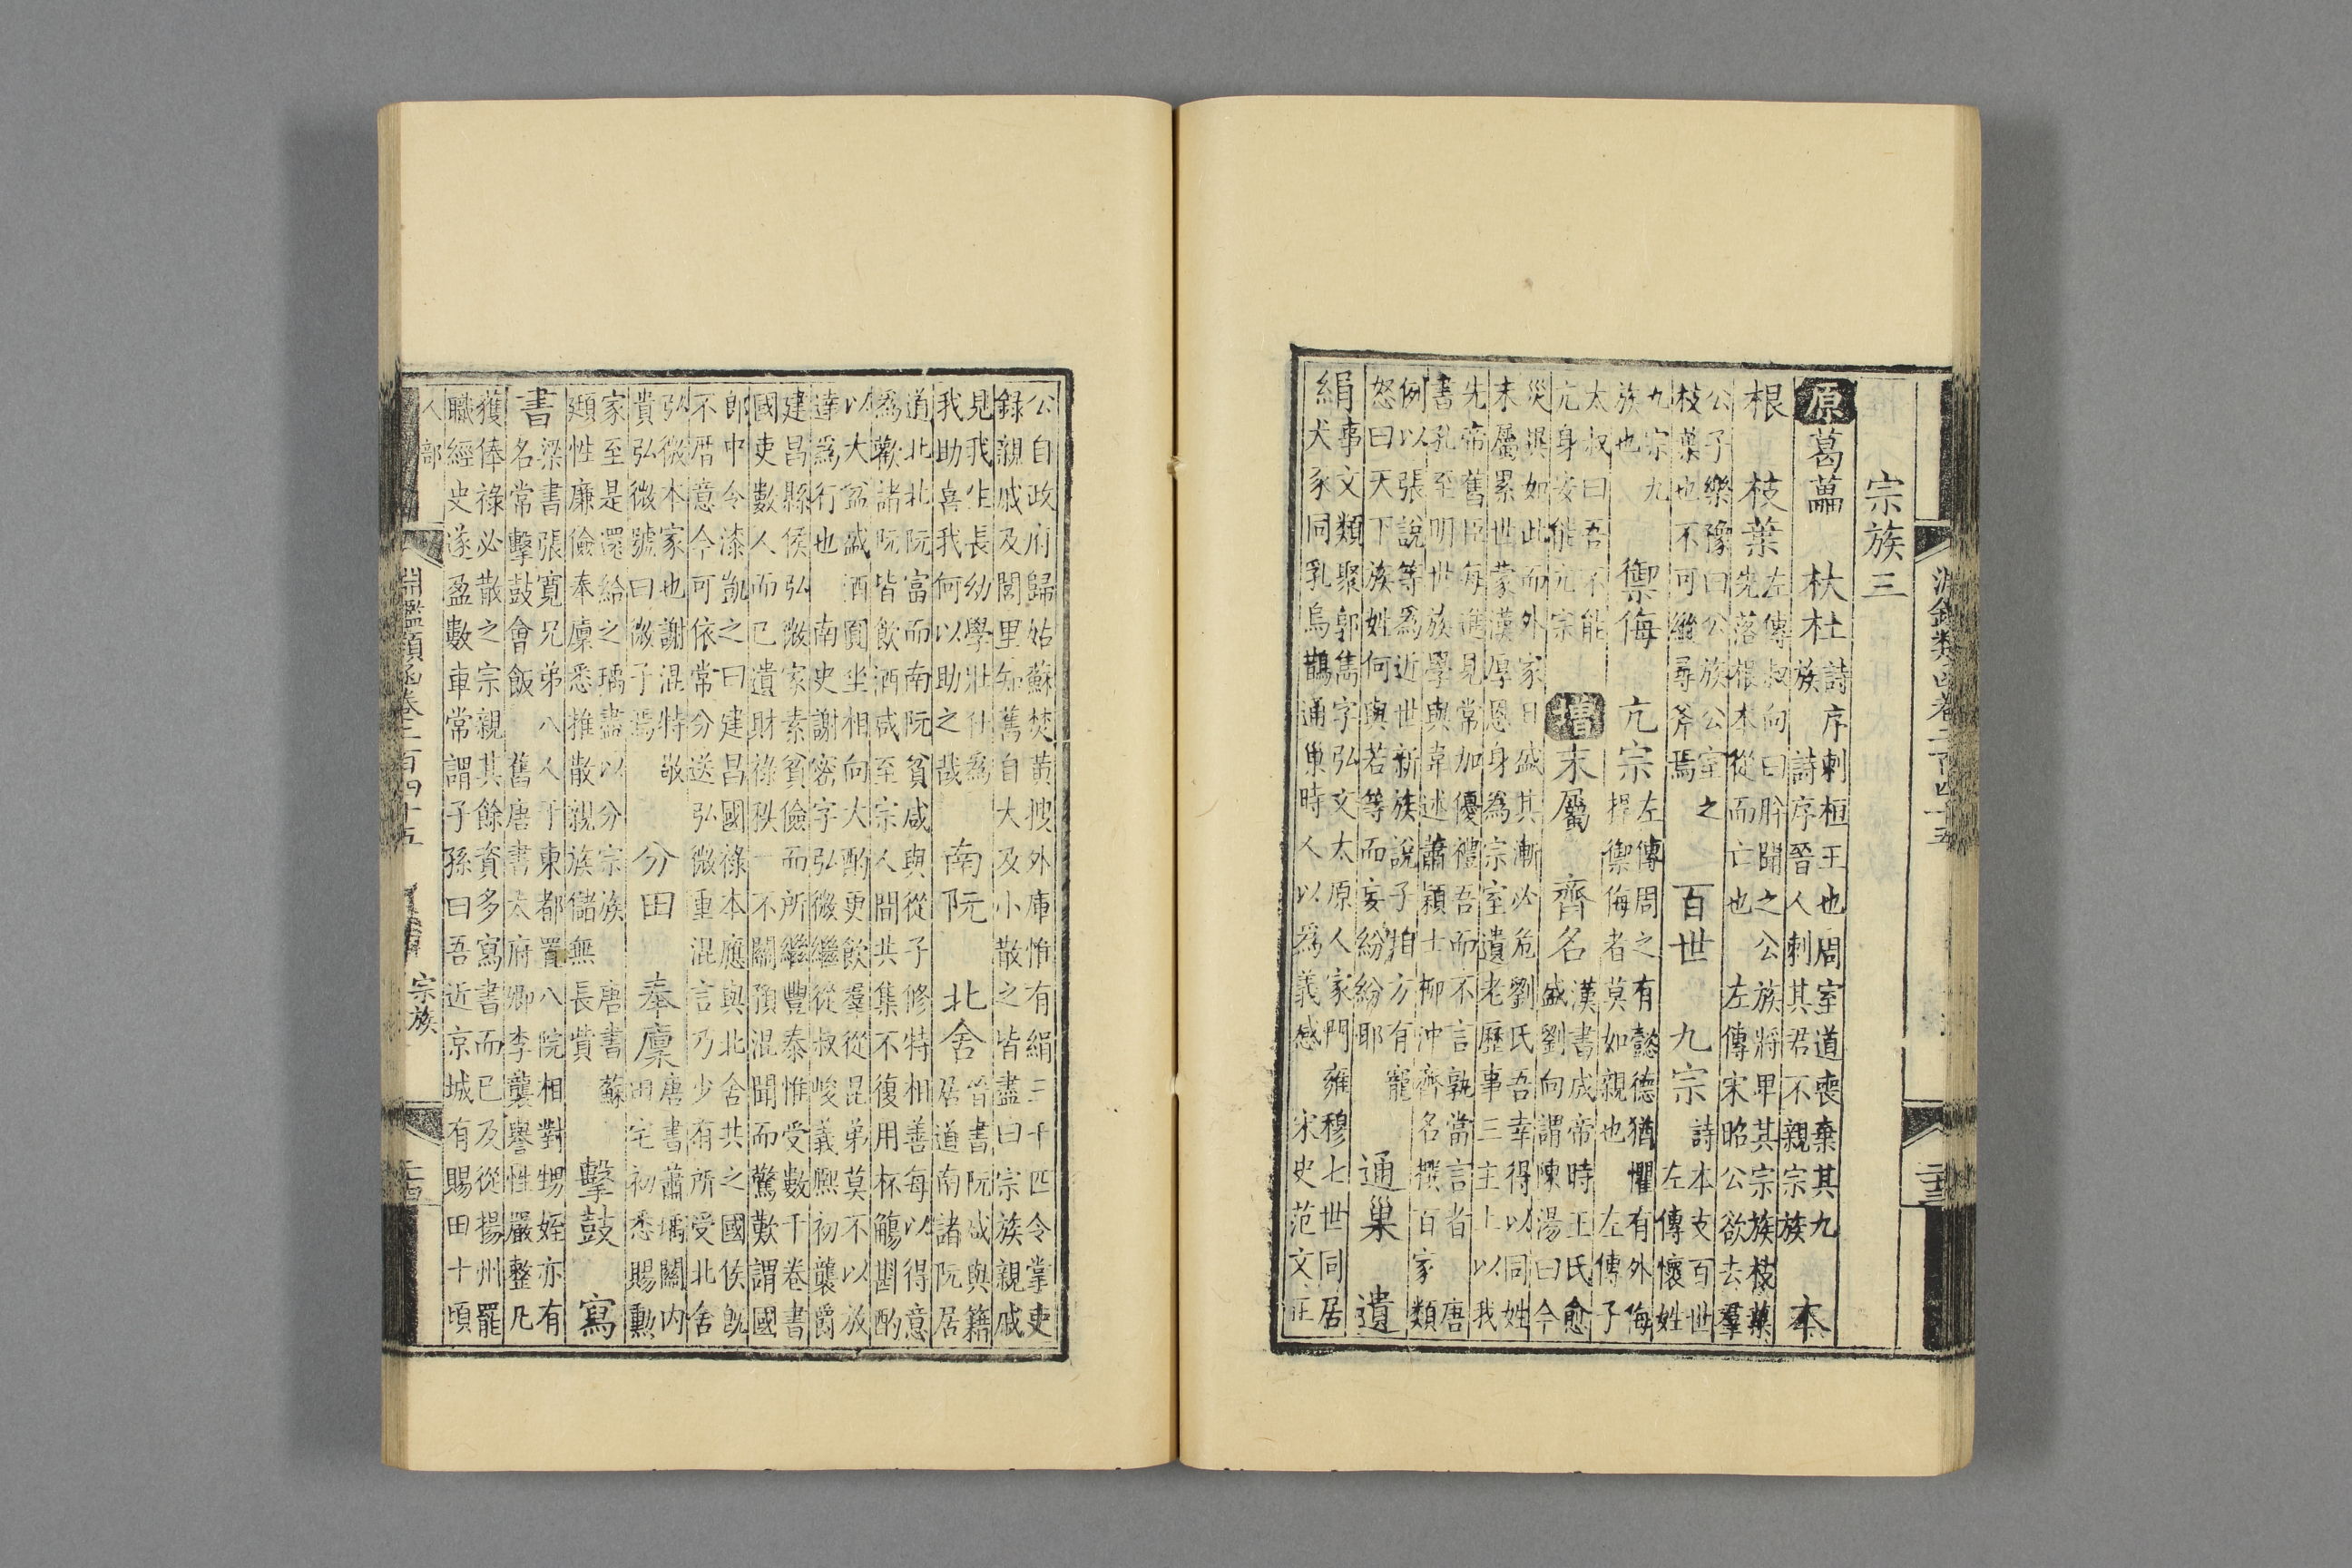 淵鑑類函卷二百四十五 二三
宗族三
原葛藟 杕杜 詩序刺桓王也周室道喪棄其九
族 詩序晉人刺其君不親宗族 本
根 枝葉 左傳叔向曰肸聞之公族將卑其宗族枝葉
先落根本從而亡也 左傳宋昭公欲去羣
公子樂豫曰公族公室之
枝葉也不可縱尋斧焉 百世 九宗 詩本支百世
左傳懷姓
九宗九
族也 禦侮 亢宗 左傳周之有懿德猶懼有外侮
捍禦侮者莫如親也 左傳子
太叔曰吾不能
亢身安能亢宗 增末屬 齊名 漢書成帝時王氏愈
盛劉向謂陳湯曰今
災異如此而外家日盛其漸必危劉氏吾幸得以同姓
末屬累世蒙漢厚恩身爲宗室遺老歷事三主上以我
先帝舊臣每進見常加優禮吾而不言孰當言者 唐
書孔至明世族學與韋述蕭穎士柳沖齊名撰百家類
例以張說等爲近世新族說子垍方有寵
怒曰天下族姓何與若等而妄紛紛耶 通巢 遺
絹 事文類聚郭雋字弘文太原人家門雍穆七世同居
犬豕同乳烏鵲通巢時人以爲義感 宋史范文正
公自政府歸姑蘇焚黃搜外庫惟有絹三千四令掌吏
錄親戚及閭里知舊自大及小散之皆盡曰宗族親戚
見我生長幼學壯仕爲
我助喜我何以助之哉 南阮 北舍 晉書阮咸與籍
居道南諸阮居
道北北阮富而南阮貧咸與從子修特相善每以得意
爲歡諸阮皆飲酒咸至宗人間共集不復用杯觴斟酌
以大盆盛酒圓坐相向大酌更飲羣從昆弟莫不以放
達爲行也 南史謝密字弘微繼從叔峻義熙初襲爵
建昌縣侯弘微家素貧儉而所繼豐泰惟受數千卷書
國吏數人而已遺財祿秩一不關預混聞而驚歎謂國
郎中令漆凱之曰建昌國祿本應與北舍共之國侯旣
不厝意今可依常分送弘微重混言乃少有所受北舍
弘微本家也謝混特敬
貴弘微號曰微子焉 分田 奉廩 唐書蕭瑀關內
田宅初悉賜勳
家至是還給之瑀盡以分宗族 唐書蘇
頲性廉儉奉廩悉推散親族儲無長貲 擊鼓 寫
書 梁書張寬兄弟八人于東都置八院相對甥姪亦有
名常擊鼓會飯 舊唐書太府卿李襲譽性嚴整凡
獲俸祿必散之宗親其餘資多寫書而已及從揚州罷
職經史遂盈數車常謂子孫曰吾近京城有賜田十頃
人部 淵鑑類函卷二百四十五 宗族 二四